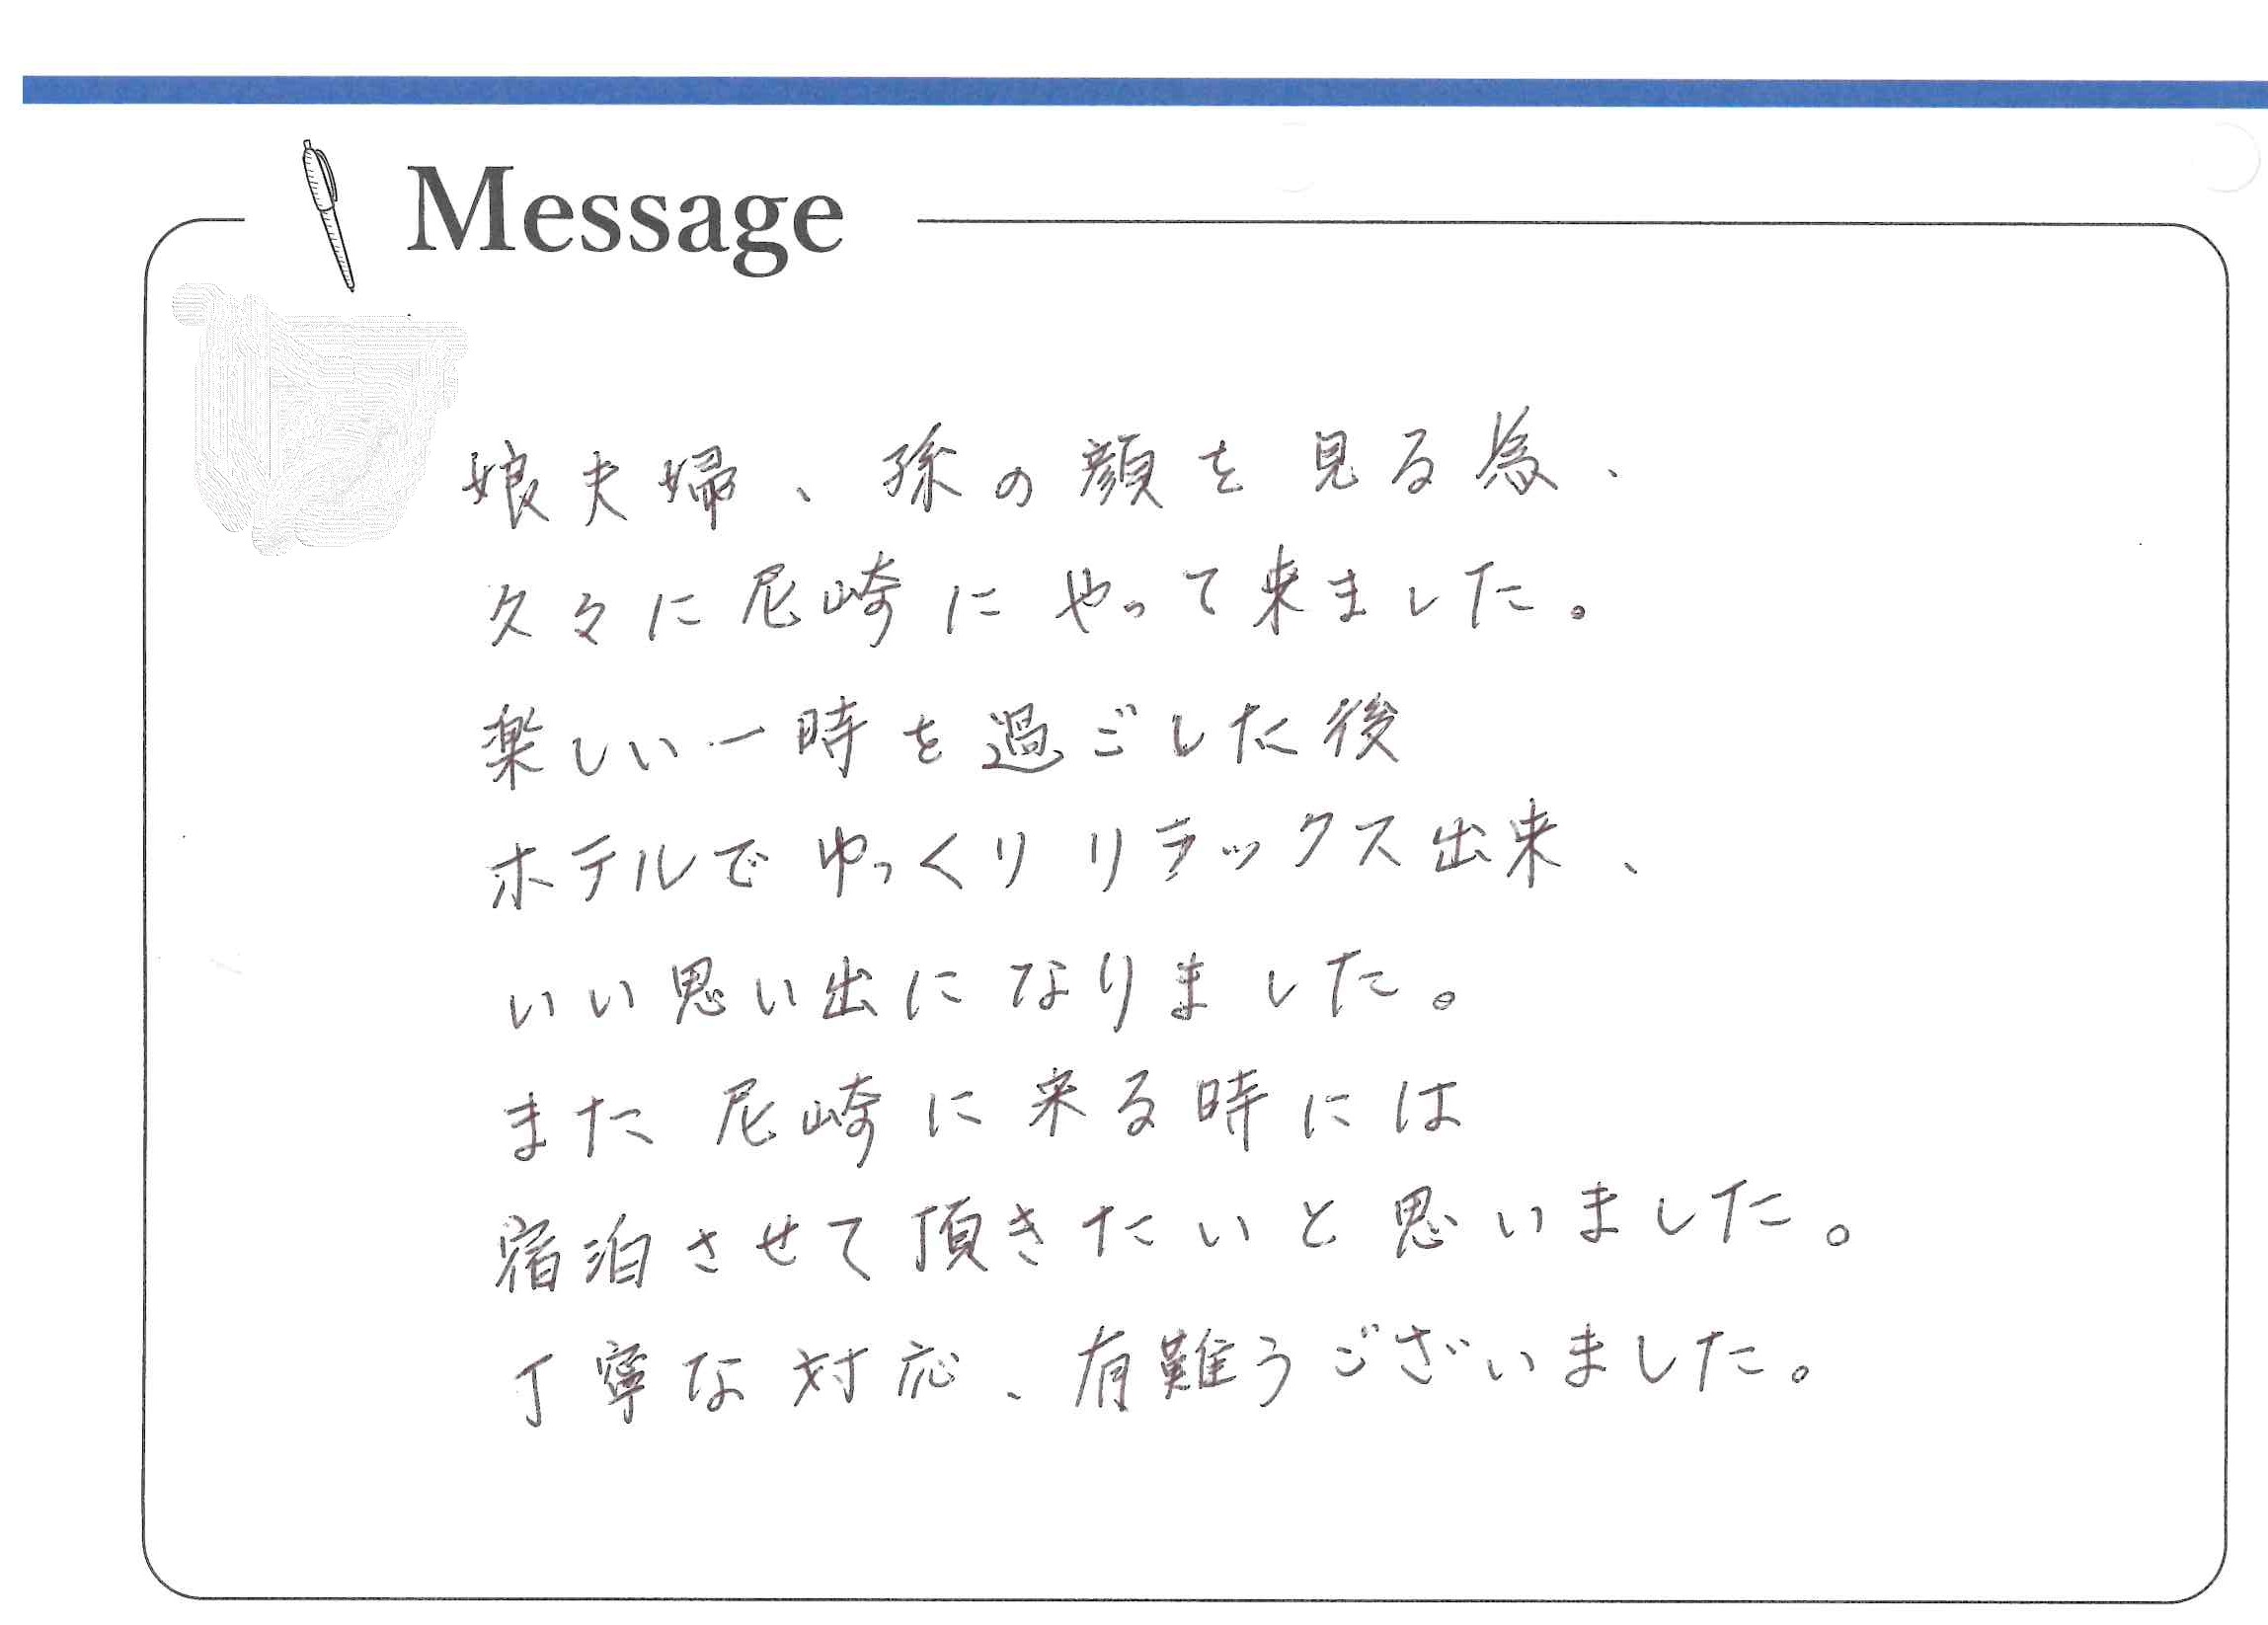 Message
娘夫婦、孫の顔を見る為、
久々に尼崎にやって来ました。
楽しい一時を過ごした後
ホテルでゆっくりリラックス出来、
いい思い出になりました。
また尼崎に来る時には
宿泊させて頂きたいと思いました。
丁寧な対応、有難うございました。